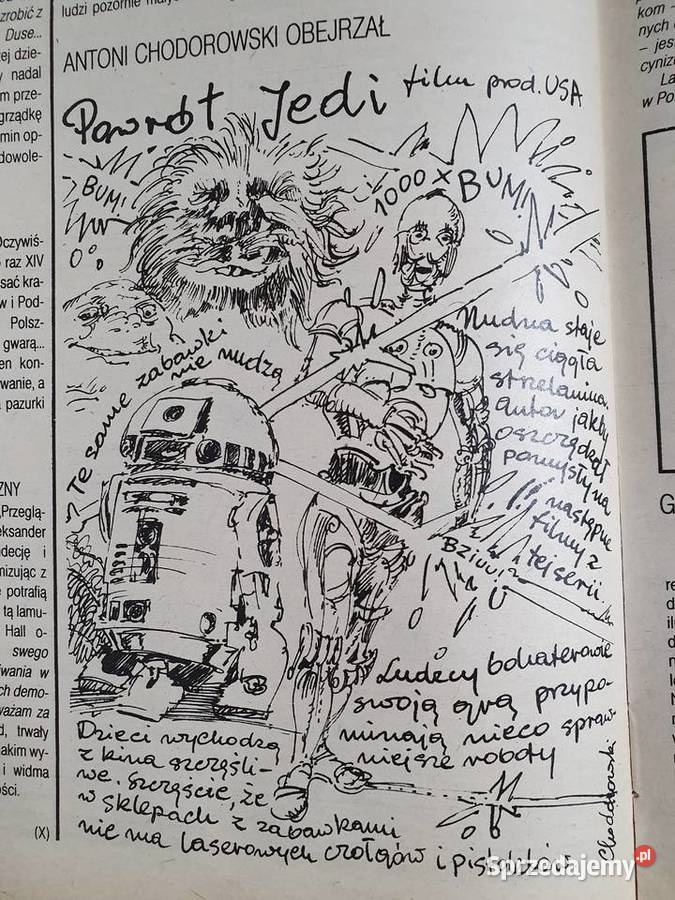 zrobić z
Duse...
ej dzie-
nadal
m prze-
grządkę
min op-
dowole-
Oczywiś-
raz XIV
sać kra-
w i Pod-
Polsz-
gwarą...
en kon-
wanie, a
pazurki
ZNY
„Przeglą-
eksander
decję i
mizując z
potrafią
tą lamu-
Hall o-
swego
iwania w
ch demo-
ważam za
d, trwały
akim wy-
i widma
ści.
(X)
ludzi pozornie
ANTONI CHODOROWSKI OBEJRZAŁ
Powrót Jedi film prod. USA
BUM!
1000 x BUM!
Te same zabawki
nie nudzą
Nudna staje
się ciągła
strzelanina.
Autor jakby
oszczędzał
pomysły na
następne
filmy z
tej serii
BZIUU!
Ludzcy bohaterowie
swoją grą przypo-
minają nieco spraw-
niejsze roboty
Dzieci wychodzą
z kina szczęśli-
we. Szczęście, że
w sklepach z zabawkami
nie ma laserowych czołgów i pistoletów
Chodorowski
kom -
nych
- jes
cynizu
La
w Po
G
Sprzedajemy.pl